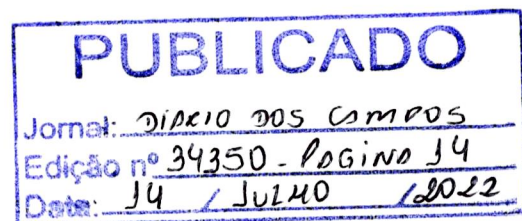 PUBLICADO
Jornal: DIÁRIO DOS CAMPOS
Edição nº 34350 - PAGINA 14
Data: 14 / JULHO / 2022